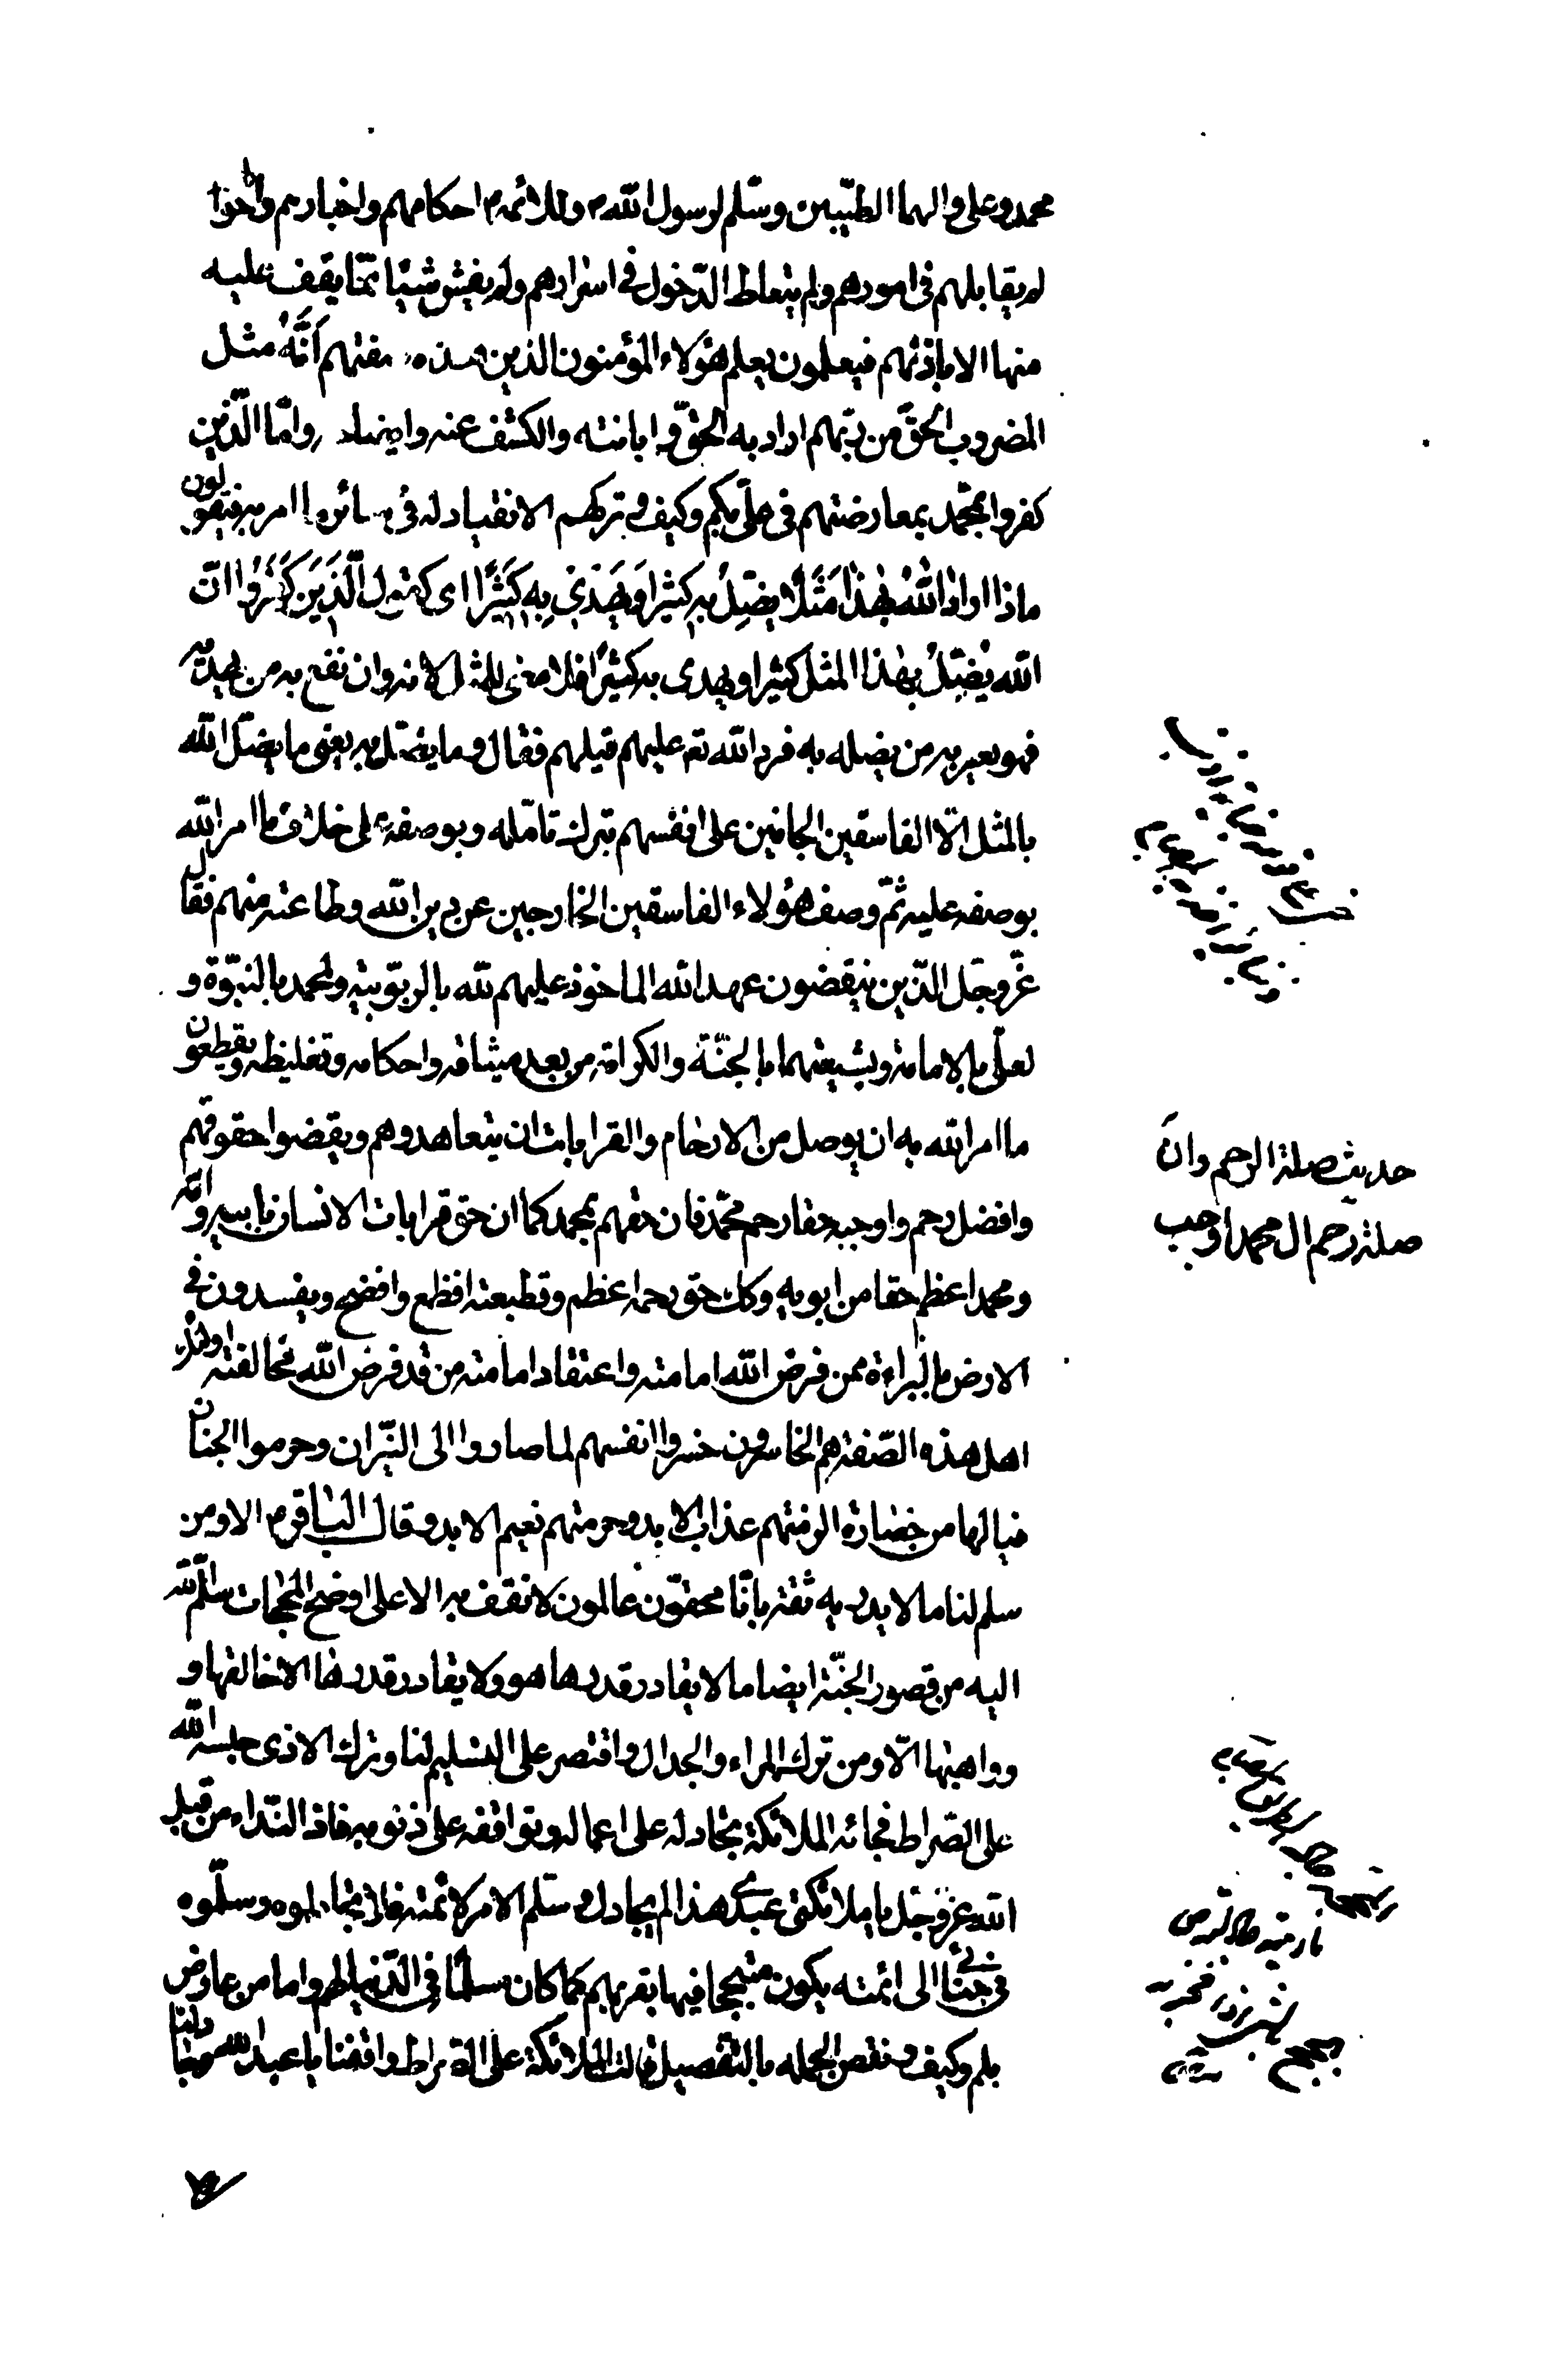 محمد وعلى والهما الطيّبين وسلّم لرسول الله م وللائمة م احكامهم واخبارهم واحوا
لم يقابلهم فى امورهم ولم يتعاط الدّخول فى اسرارهم ولم يفش شيئا ممّا يقف عليه
منها الا باذنهم فيعلمون يعلم هؤلاء المؤمنون الذين صفتهم أَنَّهُ مثل
المضروب الحقّ من ربّهم اراد به الحقّ و ابانته والكشف عنه وايضاحه وامّا الّذين
كفروا بمحمّد بمعارضتهم فى علىّ بلم وكيف و تركهم الانقياد له فى سائر ما امر به فيقولون
ماذا اراد اللهُ بهٰذا مَثَلًا يضِلُّ به كثيرا ويَهدي بِهِ كَثيرًا اى يقول الَّذينَ كَفَرُوا انّ
الله يُضِلُّ بهٰذا المثل كثيرا ويهدى به كثيرًا فلا معنى للمثل لانه وان نفع به من يهديه
فهو يضر به من يضله به فرد الله تعـ عليهم قيلهم فقال وما يضلّ به يعنى ما يضلّ الله
بالمثل الّا الفاسقين الجانين على انفسهم بترك تامّله وبوصفه على خلاف ما امر الله
بوصفه عليه ثمّ وصف هؤلاء الفاسقين الخارجين عن دين الله وطاعته منهم فقال
عزّ وجلّ الذّين ينقضون عهد الله الماخوذ عليهم لله بالربوّبيّة ولمحمد بالنبوّة و
لعلىّ بالامامة ولشيعتهما بالجنّة والكرامة من بعد ميثاقه واحكامه وتغليظه ويقطعون
ما امر الله به ان يوصل من الارحام والقرابات ان يتعاهدوهم ويقضوا حقوقهم
وافضل رحم واوجبه حقا رحم محمّد فان حقهم بمحمد كما ان حق قرابات الانسان بابيه وامّه
ومحمد اعظم حقا من ابويه وكك حق رحمه اعظم وقطيعته افظع وافضح ويفسدون فى
الارض بالبراءة ممن فرض الله امامته واعتقاد امامته من قد فرض الله مخالفته اولئك
اهل هذه الصّفة هم الخاسرون خسروا انفسهم لما صاروا الى النّيران وحرموا الجنان
فيا لها من خسارة الزمتهم عذاب الابد وحرمتهم نعيم الابد وقال الباقر م الا ومن
سلم لنا ما لا يدريه ثقة بانّا محقّون عالمون لا نقف به الا على اوضح المحجّات سلّم الله
اليه من قصور الجنّة ايضا ما لا يقادر قدرها هو ولا يقادر قدرها الا خالقها و
وواهبها الّا ومن ترك المراء والجدال واقتصر على التسليم لنا وترك الاذى حبسه الله
على الصّراط فجائه الملائكة تجادله على اعماله وتواقفه على ذنوبه فاذا النّداء من قبل
الله عزّ وجلّ يا ملائكتى عبدى هذا لم يجادل و سلّم الامر لائمته فلا تجادلوه وسلّموه
فى جنّاتى الى ائمته يكون متبجحا فيها بقربهم كما كان مسلّما فى الدّنيا لهم واما من عارض
بلم وكيف و نقض الجمله بالتفصيل قالت له الملائكة على الصراط واقفنا يا عبد الله وجادلنا
حديث صلة الرحم وانّ
صلة رحم ال محمد اوجب